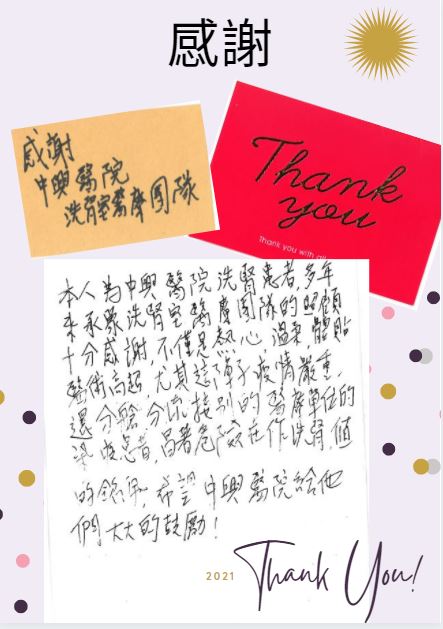 感謝
感謝
中興醫院
洗腎室醫療團隊
Thank
you
Thank you with all
本人為中興醫院洗腎患者,多年
來承蒙洗腎室醫療團隊的照顧
十分感謝,不僅是熱心 溫柔 體貼
醫術高超,尤其這陣子疫情嚴重,
還分艙,分流接別的醫療單位的
染疫患者,冒著危險在作洗腎,值
的 希望中興醫院給他
們大大的鼓勵!
2021
Thank You!